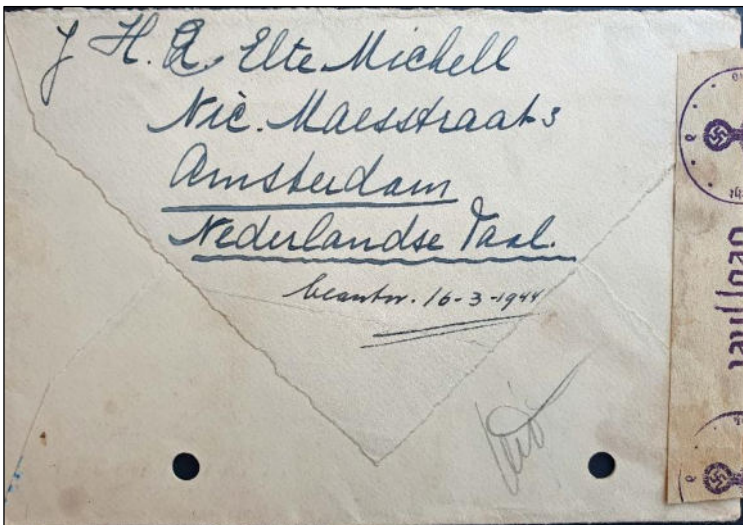 J. H. A. Elte Michell
Nic. Maesstraat 3
Amsterdam
Nederlandse Taal.
beantw. 16-3-1944
Geöffnet